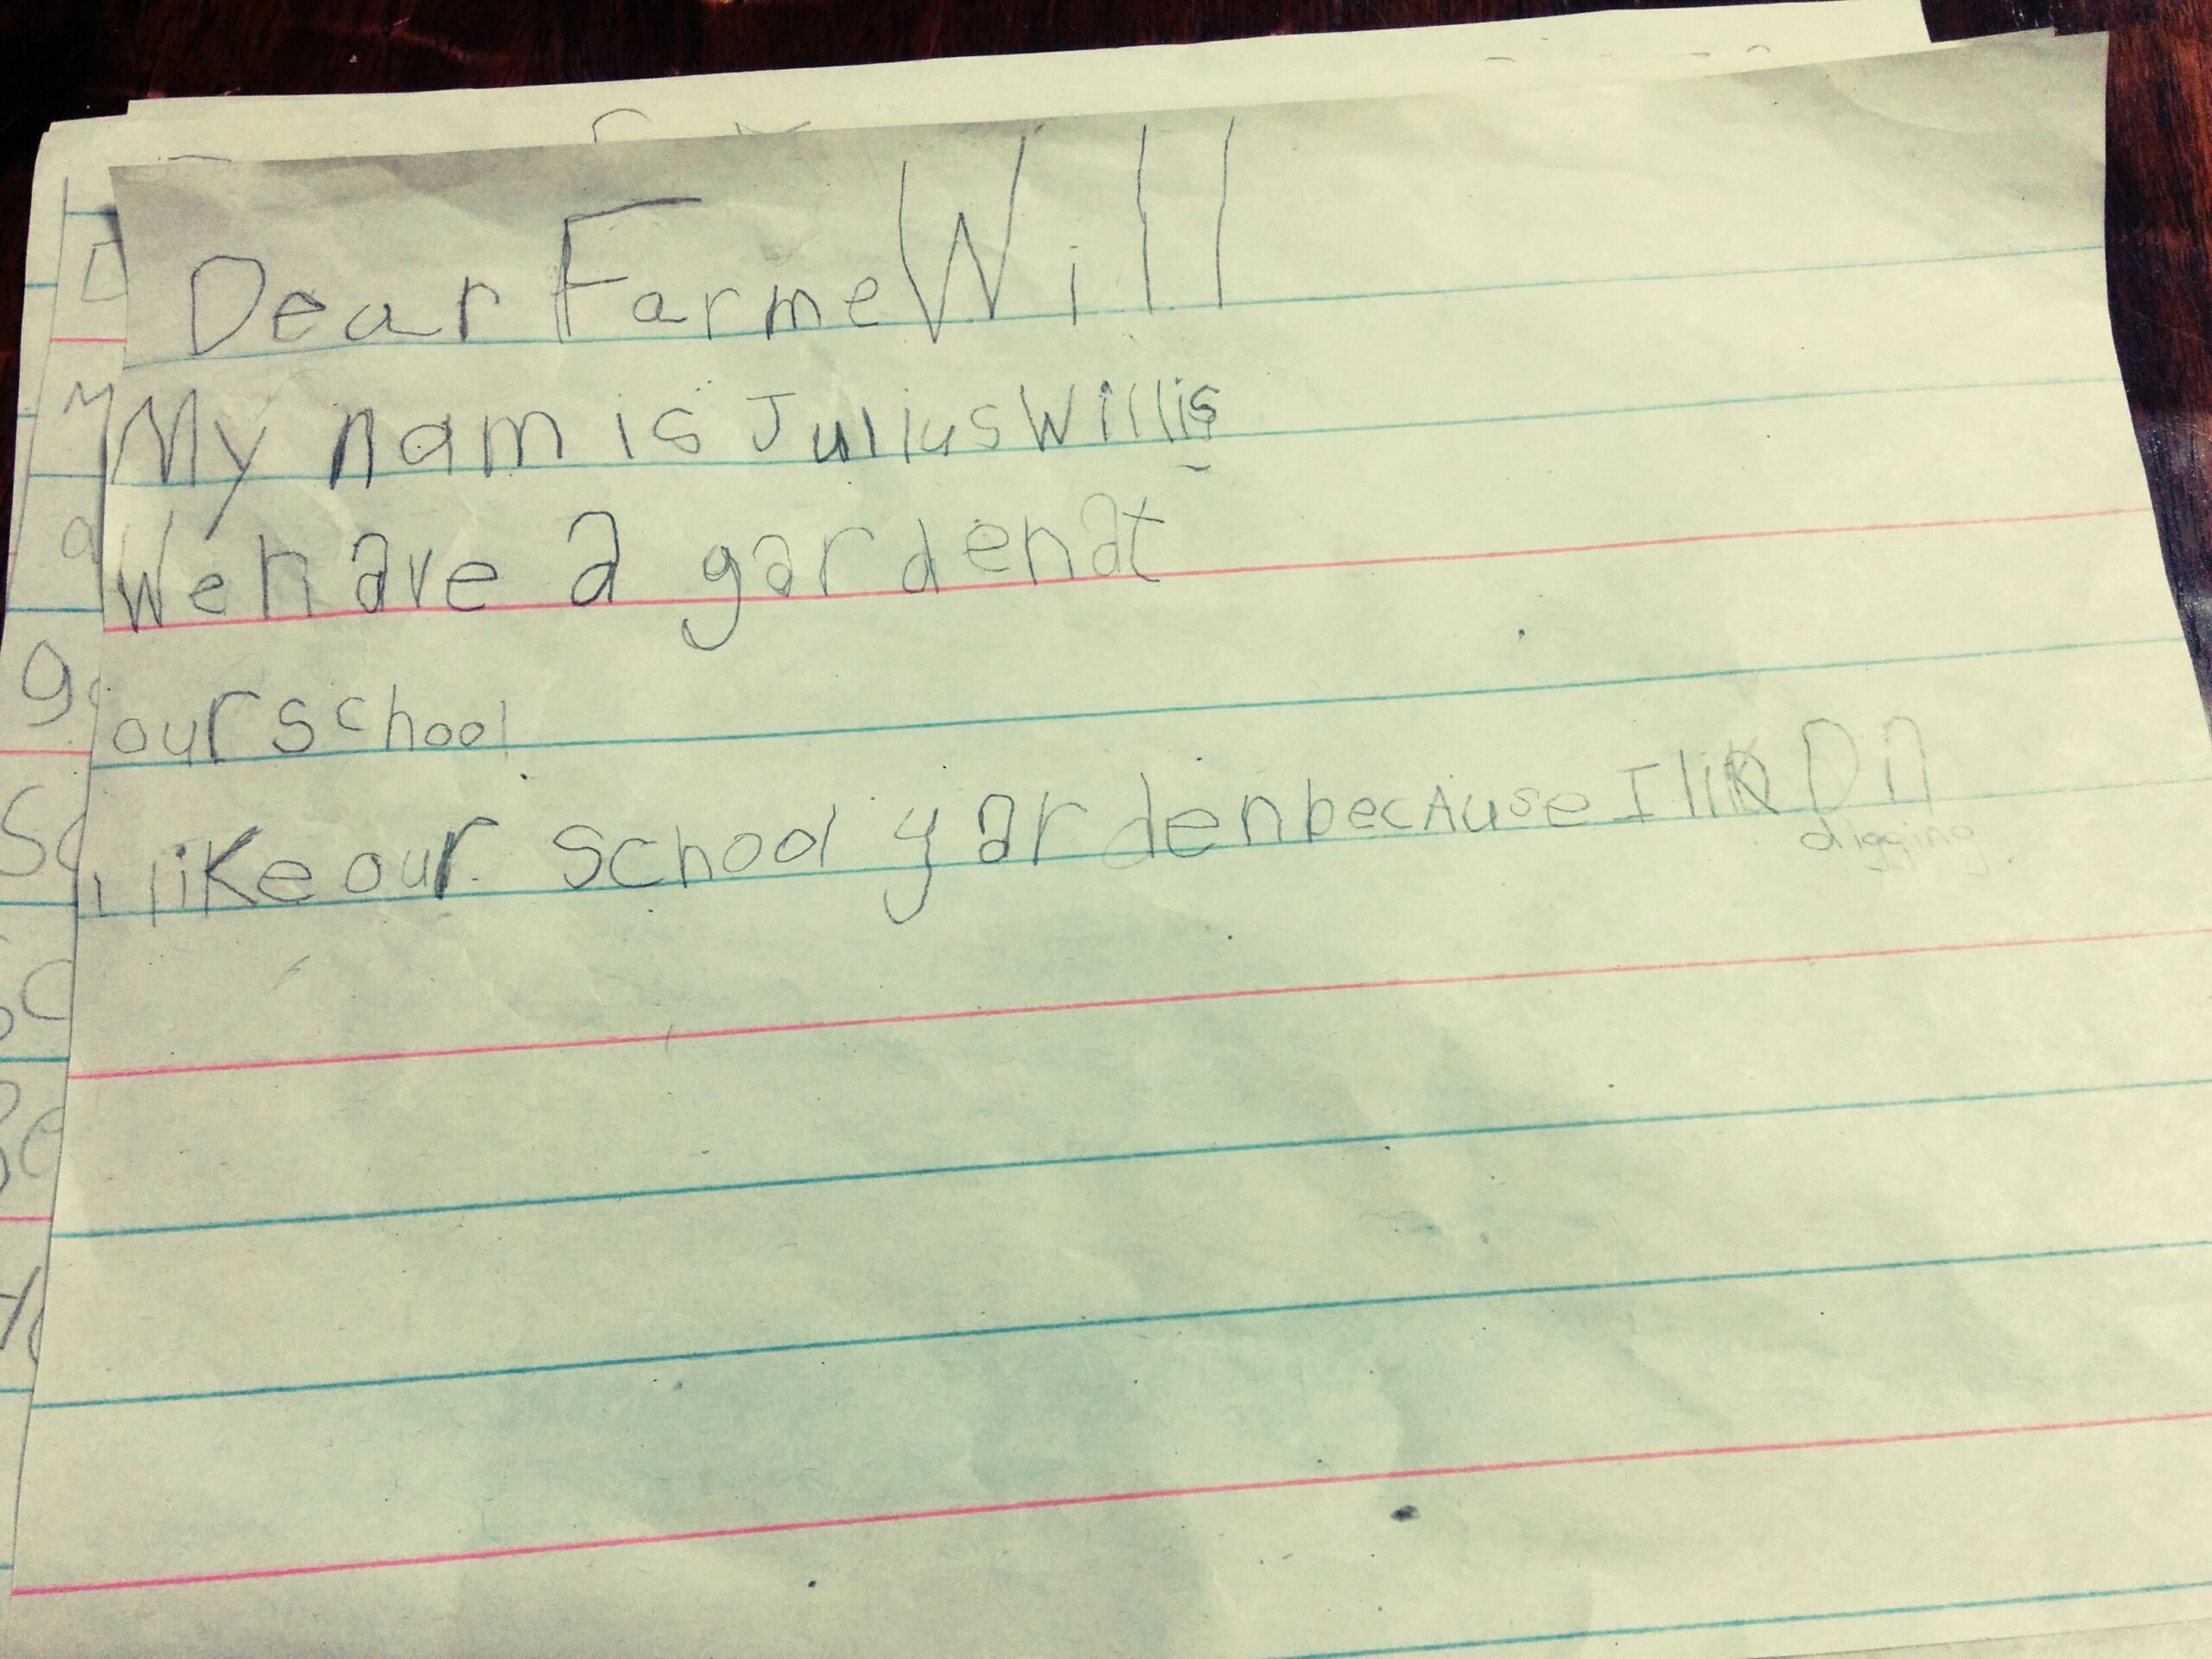 Dear Farme Will
My nam is Julius Willis
We have a garden at
our school
I like our school garden because I lik Din
digging